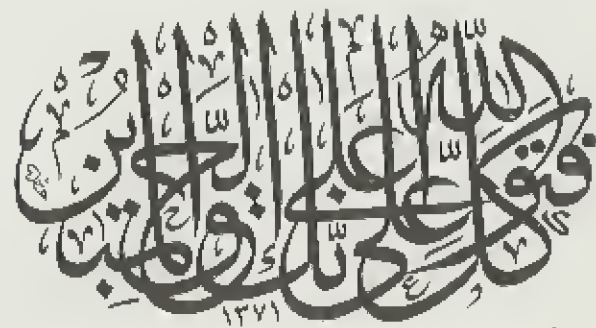 فتوكل على الله إنك على الحق المبين
١٣٧١